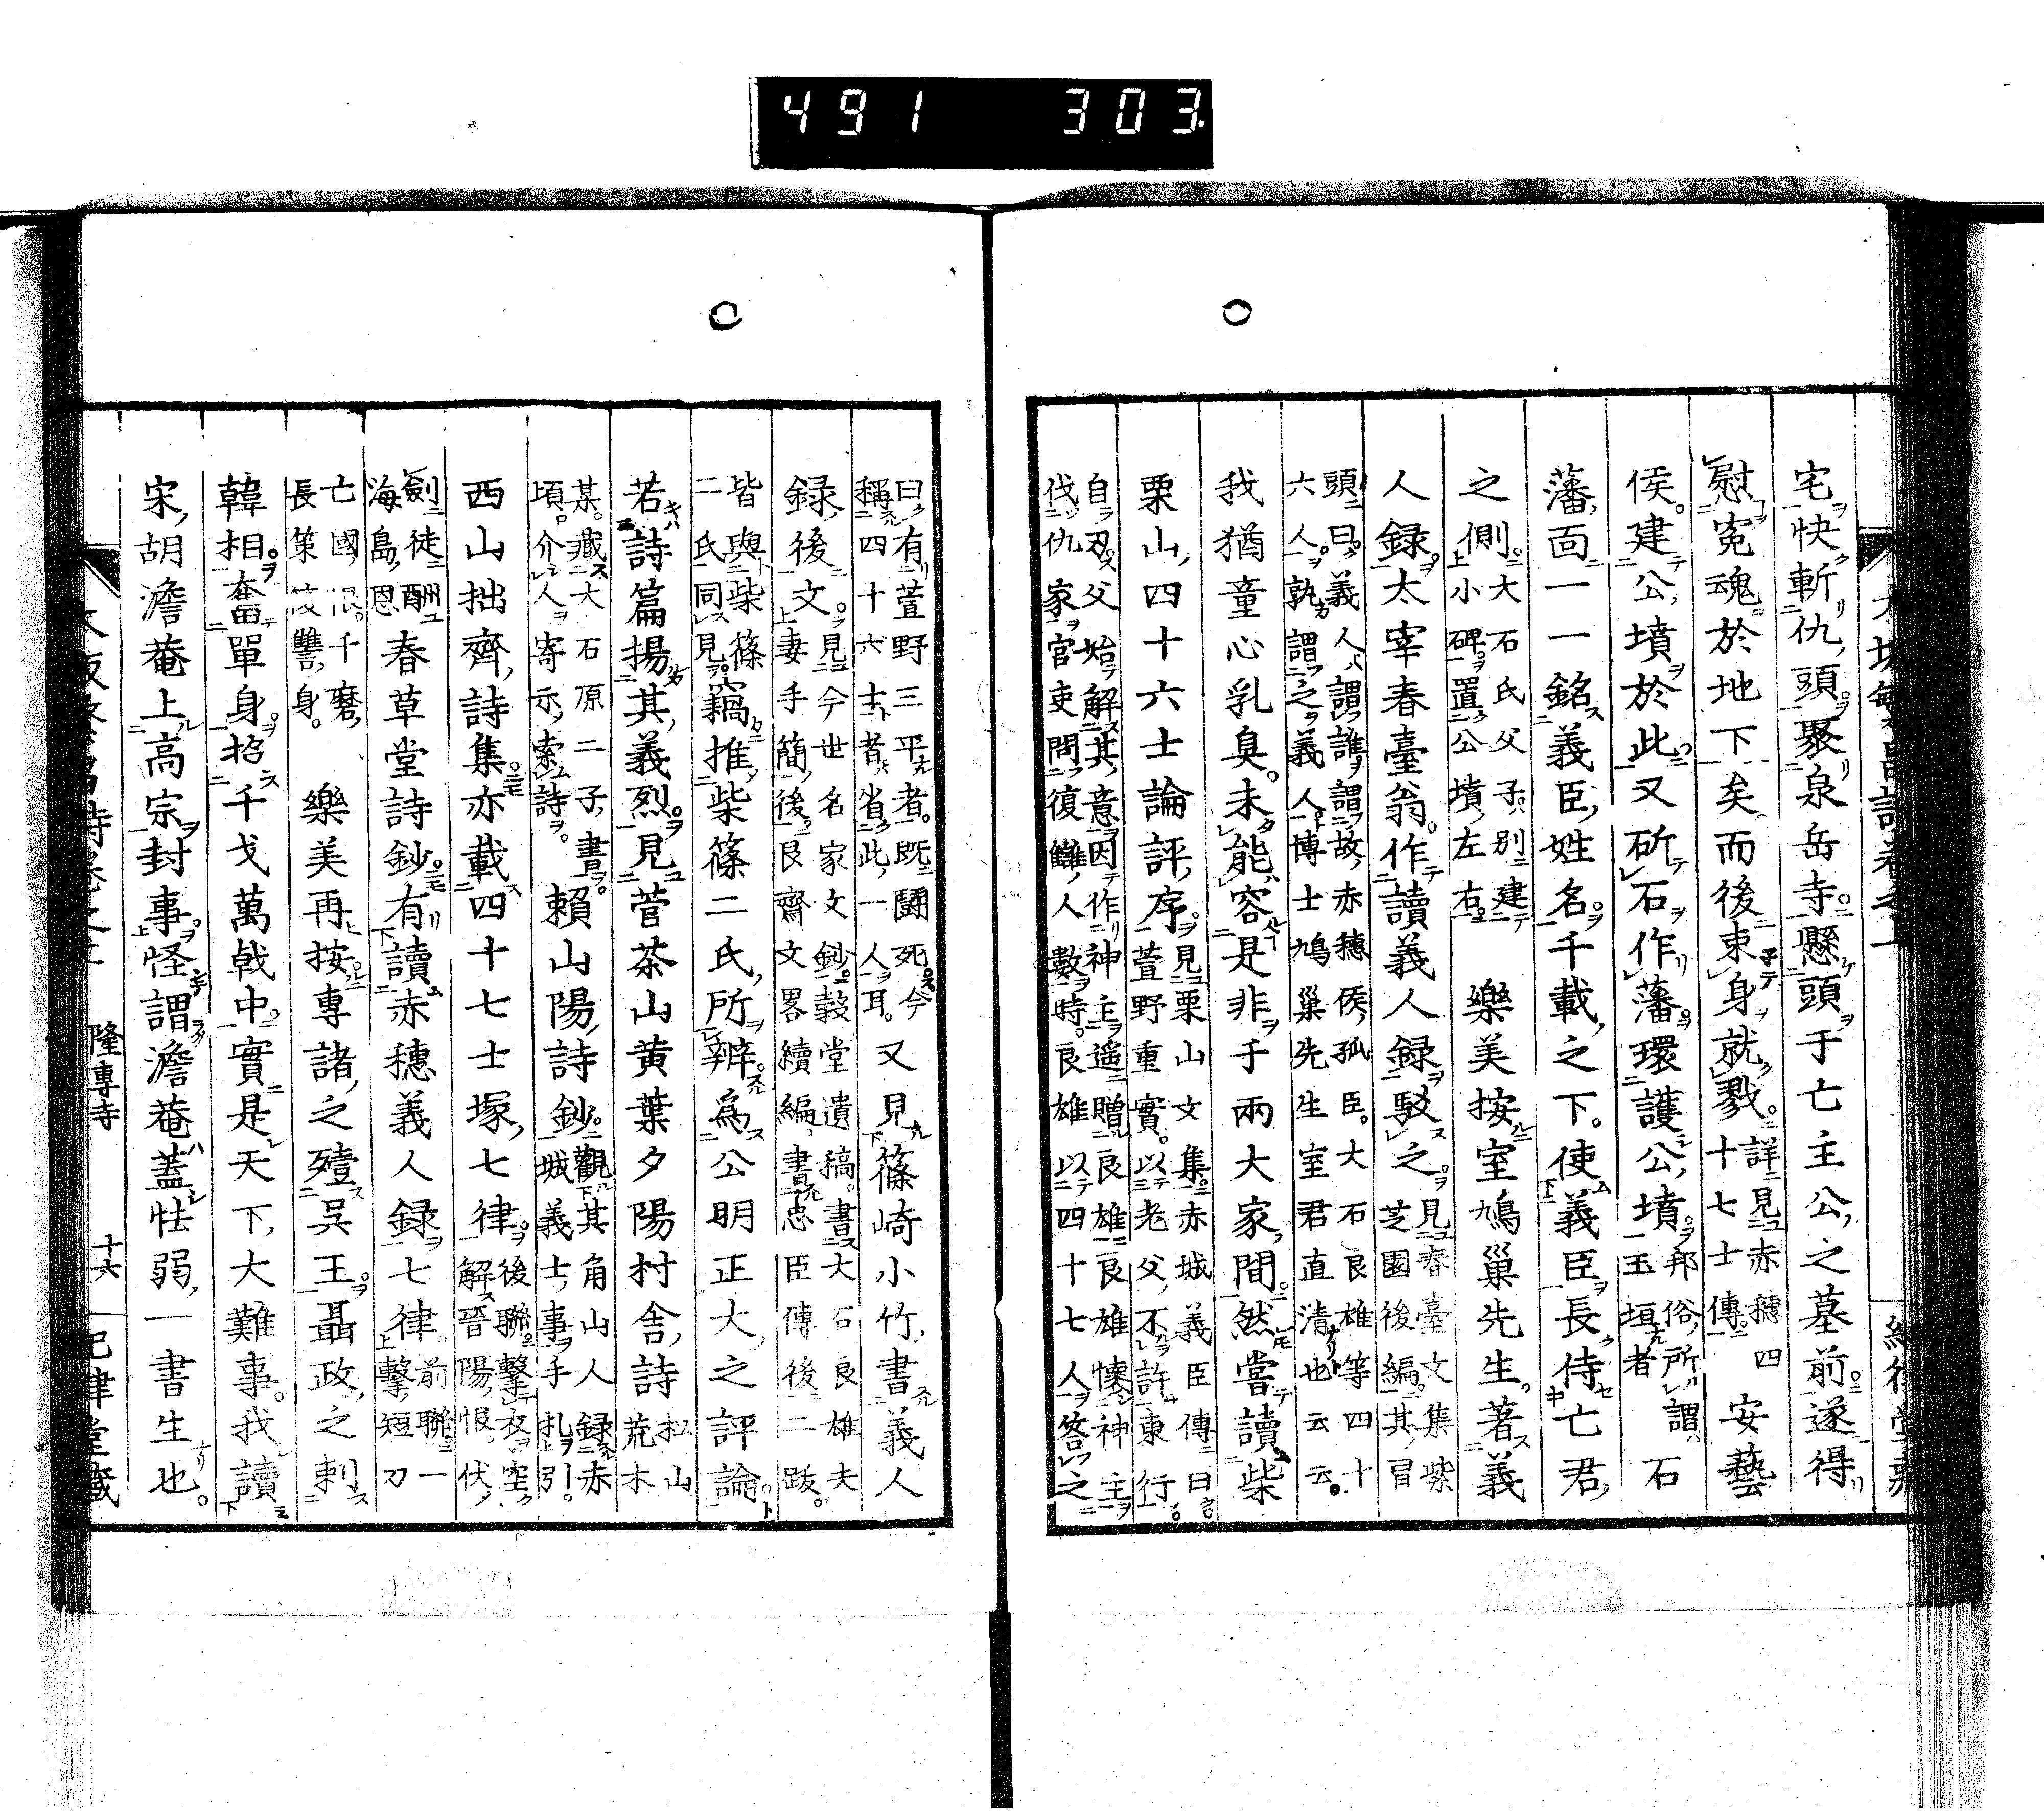 491 303
宅快斬仇頭聚泉岳寺懸頭于亡主公之墓前遂得
慰寃魂於地下矣而後束身就戮詳見赤穗四十七士傳安藝
侯建公墳於此又斫石作藩環護公墳邦俗所謂玉垣者石
藩面一一銘義臣姓名千載之下使義臣長侍亡君
之側大石氏父子別建小碑置公墳左右樂美按室鳩巢先生著義
人録太宰春臺翁作讀義人録駁之見春臺文集紫芝園後編其冒
頭曰義人謂誰謂故赤穗侯孤臣大石良雄等四十六人孰謂之義人博士鳩巢先生室君直清也云云
我猶童心乳臭未能容是非于兩大家間然嘗讀柴
栗山四十六士論評序見栗山文集赤城義臣傳曰萱野重實以老父不許東行
自刃父始解其意因作神主遙贈良雄良雄懷神主伐仇家官吏問復讎人數時良雄以四十七人答之
曰有萱野三平者既鬪死今稱四十六士者省此一人耳又見篠崎小竹書義人
録後文見今世名家文鈔穀堂遺稿書大石良雄夫妻手簡後艮齋文畧續編書忠臣傳後二跋
皆與柴篠二氏同見竊推柴篠二氏所辨為公明正大之評論
若詩篇揚其義烈見菅茶山黃葉夕陽村舍詩松山荒木
某藏大石原二子書頃介人寄示索詩賴山陽詩鈔觀其角山人録赤城義士事手札引
西山拙齊詩集亦載四十七士塚七律後聯擊衣空解晉陽恨伏
劍徒酬海島恩春草堂詩鈔有讀赤穗義人録七律前聯一擊短刀
亡國恨千磨長策復讐身樂美再按專諸之殪吳王聶政之刺
韓相奮單身招千戈萬戟中實是天下大難事我讀
宋胡澹菴上高宗封事怪謂澹菴蓋怯弱一書生也
隆專寺 十六